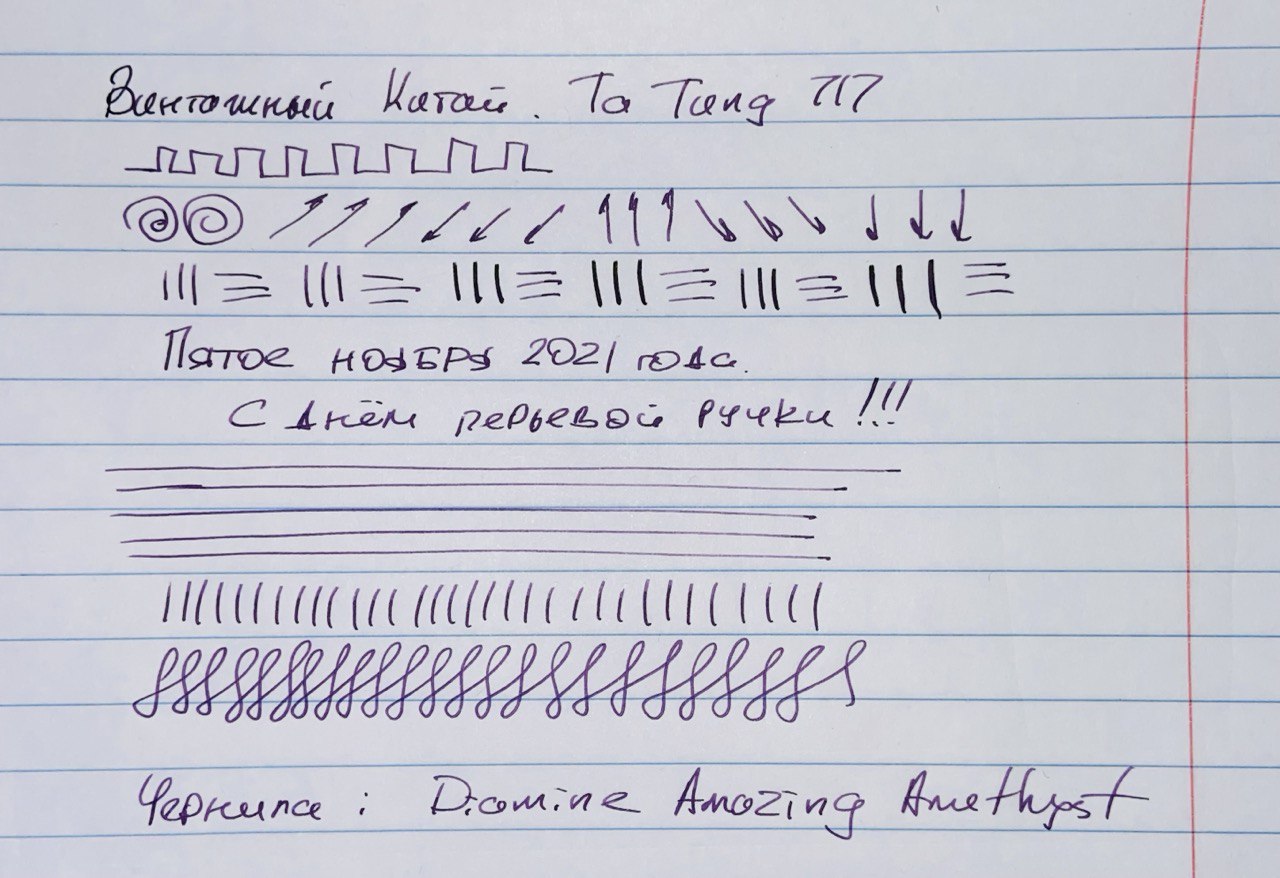 Винтажный Китай. Ta Tung 717
Пятое ноября 2021 года.
С днём перьевой ручки!!!
Чернила: Diamine Amazing Amethyst